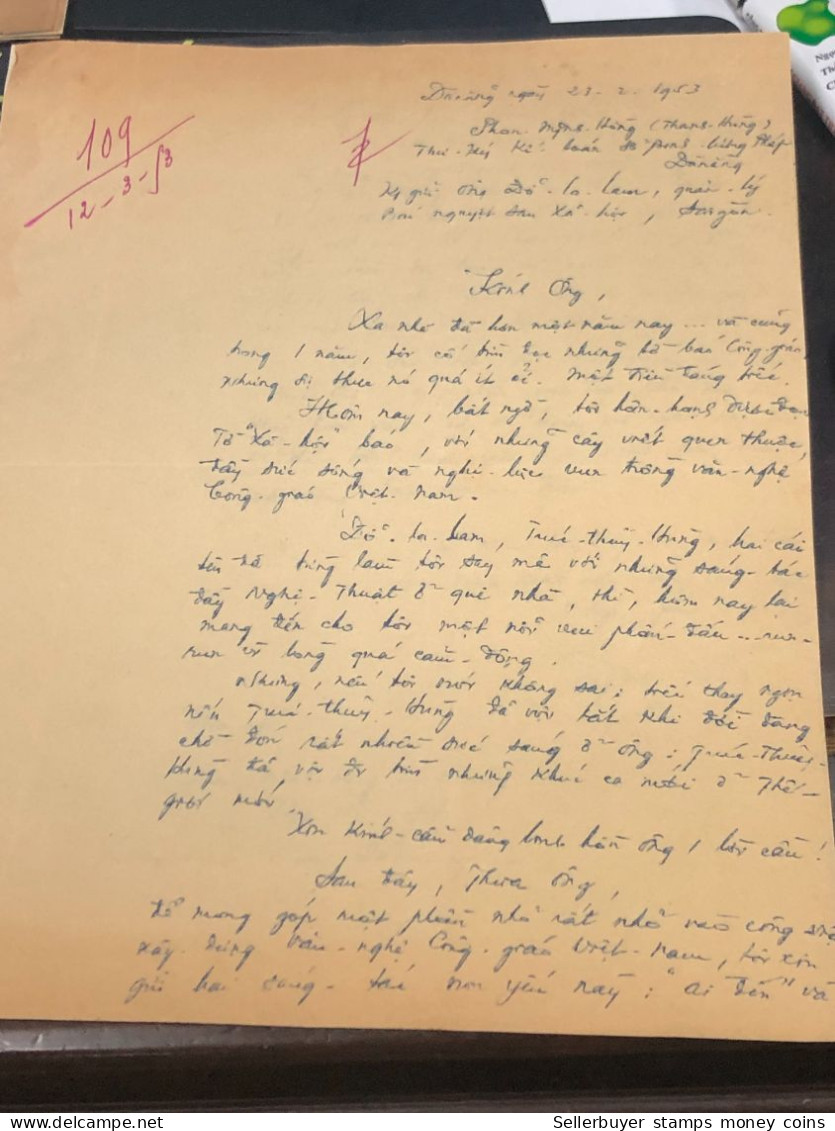 Đànẵng ngày 23-2-1953
109
12-3-53
Phan-Mộng-Hồng (Thanh-Hùng)
Thư-ký Kế-toán
Đànẵng
Kg gửi Ông Đỗ-la-Lam, quản-lý
nguyệt san Xã-hội, Sàigòn.
Kính Ông,
Xa nhà đã hơn một năm nay... và cũng
trong 1 năm, tôi cố tìm đọc những tờ báo Công-giáo,
nhưng sự thực nó quá ít ỏi. Một điều đáng tiếc.
Hôm nay, bất ngờ, tôi hân-hạnh được đọc
Tờ "Xã-hội" báo, với những cây viết quen thuộc,
đầy sức sống và nghị-lực trong văn-nghệ
Công-giáo Việt-Nam.
Đỗ-la-Lam, Trúc-Thủy-Hưng, hai cái
tên đã từng làm tôi say mê với những sáng-tác
đầy Nghệ-Thuật ở quê nhà, thì, hôm nay lại
mang đến cho tôi một nỗi vui phấn-đấu... run-
run vì lòng quá cảm-động.
Nhưng, nếu tôi không sai; tiếc thay ngọn
nến Trúc-Thủy-Hưng đã vội tắt khi đời đang
chờ đón rất nhiều sức sáng ở ông; Trúc-Thủy-
Hưng đã vội đi tìm những khúc ca mới ở Thế-
giới mới.
Xin Kính-cẩn dâng linh hồn ông 1 lời cầu!
Sau đây, Thưa Ông,
để mong góp một phần nhỏ rất nhỏ vào công việc
xây-dựng văn-nghệ Công-giáo Việt-Nam, tôi xin
gửi hai sáng-tác non yếu này: "Ai đến" và
Sellerbuyer stamps money coins